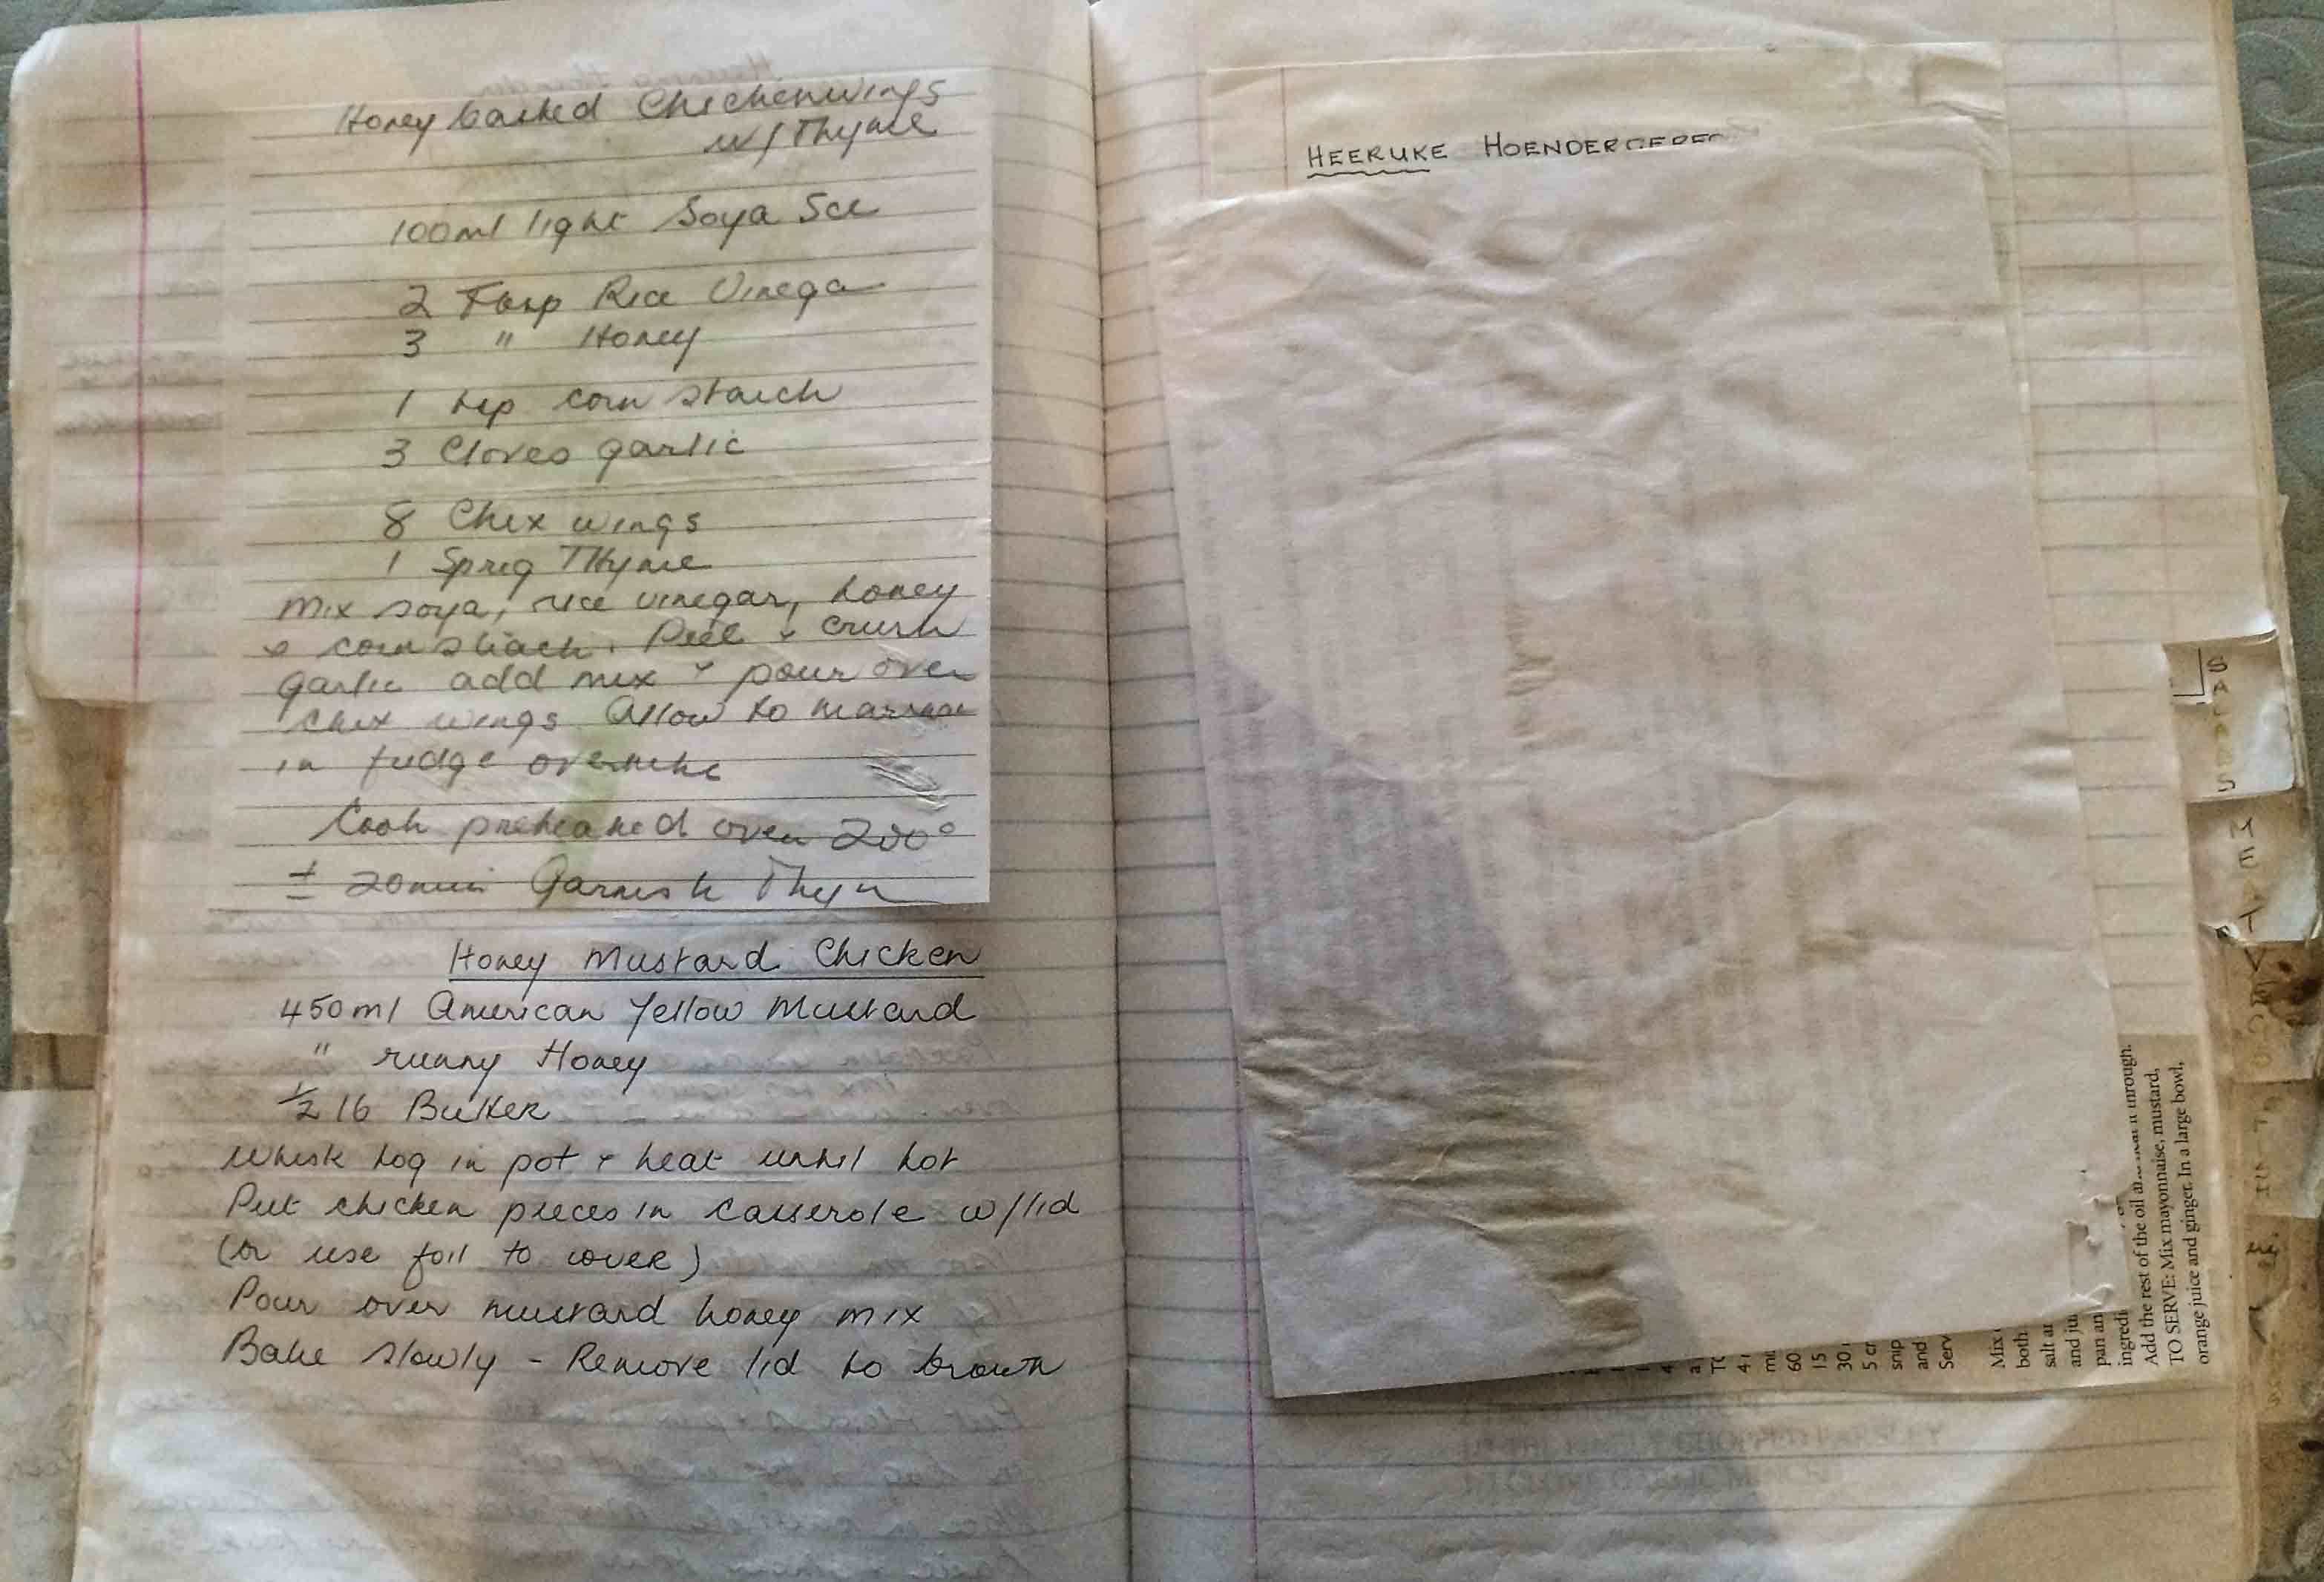 Honey basked Chickenwings
w/ Thyme
100ml light Soya Sce
2 Tbsp Rice Vinega
3 " Honey
1 tsp corn starch
3 Cloves garlic
8 Chix wings
1 Sprig Thyme
Mix soya, rice vinegar, honey
& corn starch. Peel + crush
garlic add mix + pour over
chix wings. Allow to marinae
in fudge overnite
Cook preheated oven 200°
± 20min Garnish Thyn
Honey Mustard Chicken
450ml American Yellow Mustard
" runny Honey
½ lb Butter
Whisk tog in pot + heat until hot
Put chicken pieces in casserole w/lid
(or use foil to cover)
Pour over mustard honey mix
Bake slowly - Remove lid to brown
HEERLIKE
SALADS
MEAT
ingredi
Add the rest of the oil through.
TO SERVE: Mix mayonnaise, mustard,
orange juice and ginger. In a large bowl,
Mix
both
salt an
and jui
pan an
60
15
30
5 cr
snip
and
Serv